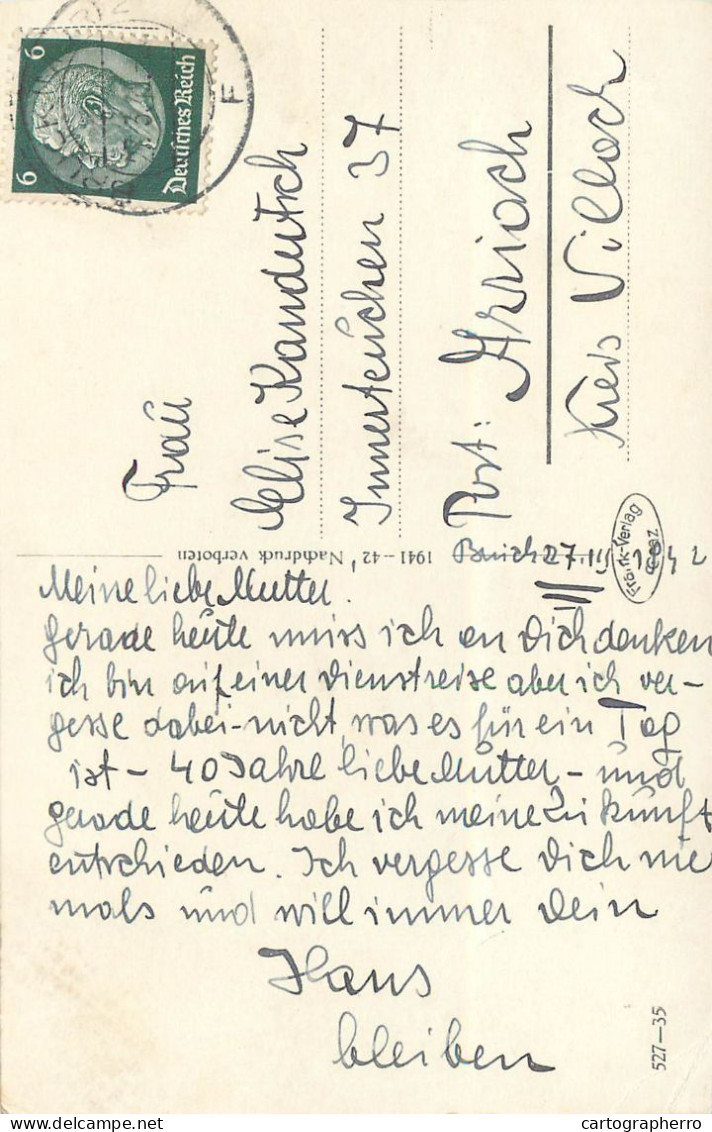 6
6
Deutsches Reich
F
Frau
Elise Kandutsch
Innerteuchen 37
Post: Arriach
Kreis Villach
1941–42, Nachdruck verboten
Frank-Verlag
Graz
27. III 1942
Meine liebe Mutter.
gerade heute muss ich an Dich denken
ich bin auf einer Dienstreise aber ich ver-
gesse dabei nicht, was es für ein Tag
ist – 40 Jahre liebe Mutter – und
gerade heute habe ich meine Zukunft
entschieden. Ich vergesse Dich nie
mals und will immer Dein
Hans
bleiben
527–35
delcampe.net
cartographerro